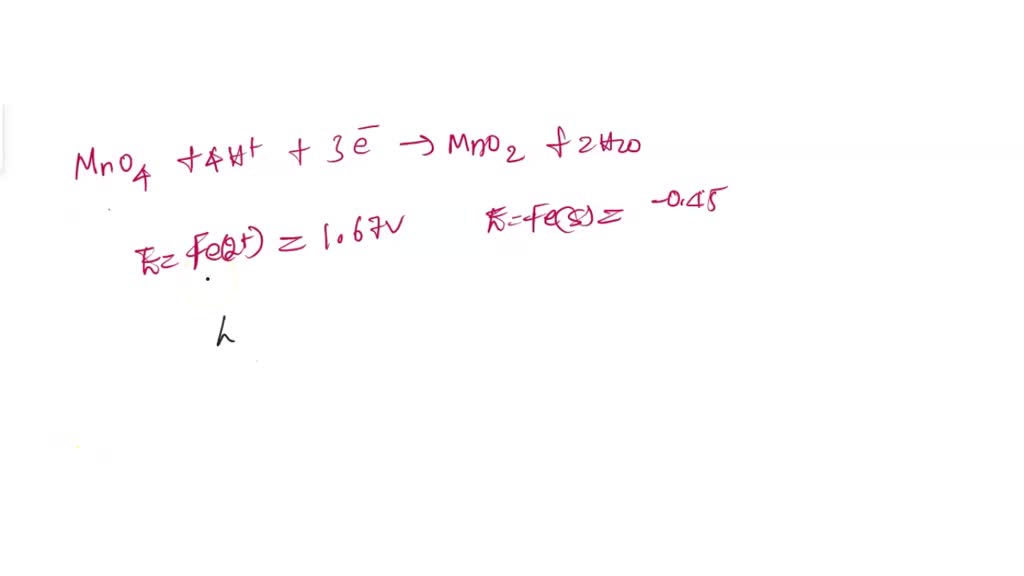 MnO4 + 4H+ + 3e- → MnO2 + 2H2O
E = Fe(2+) = 1.67V E = Fe(s) = -0.45
h